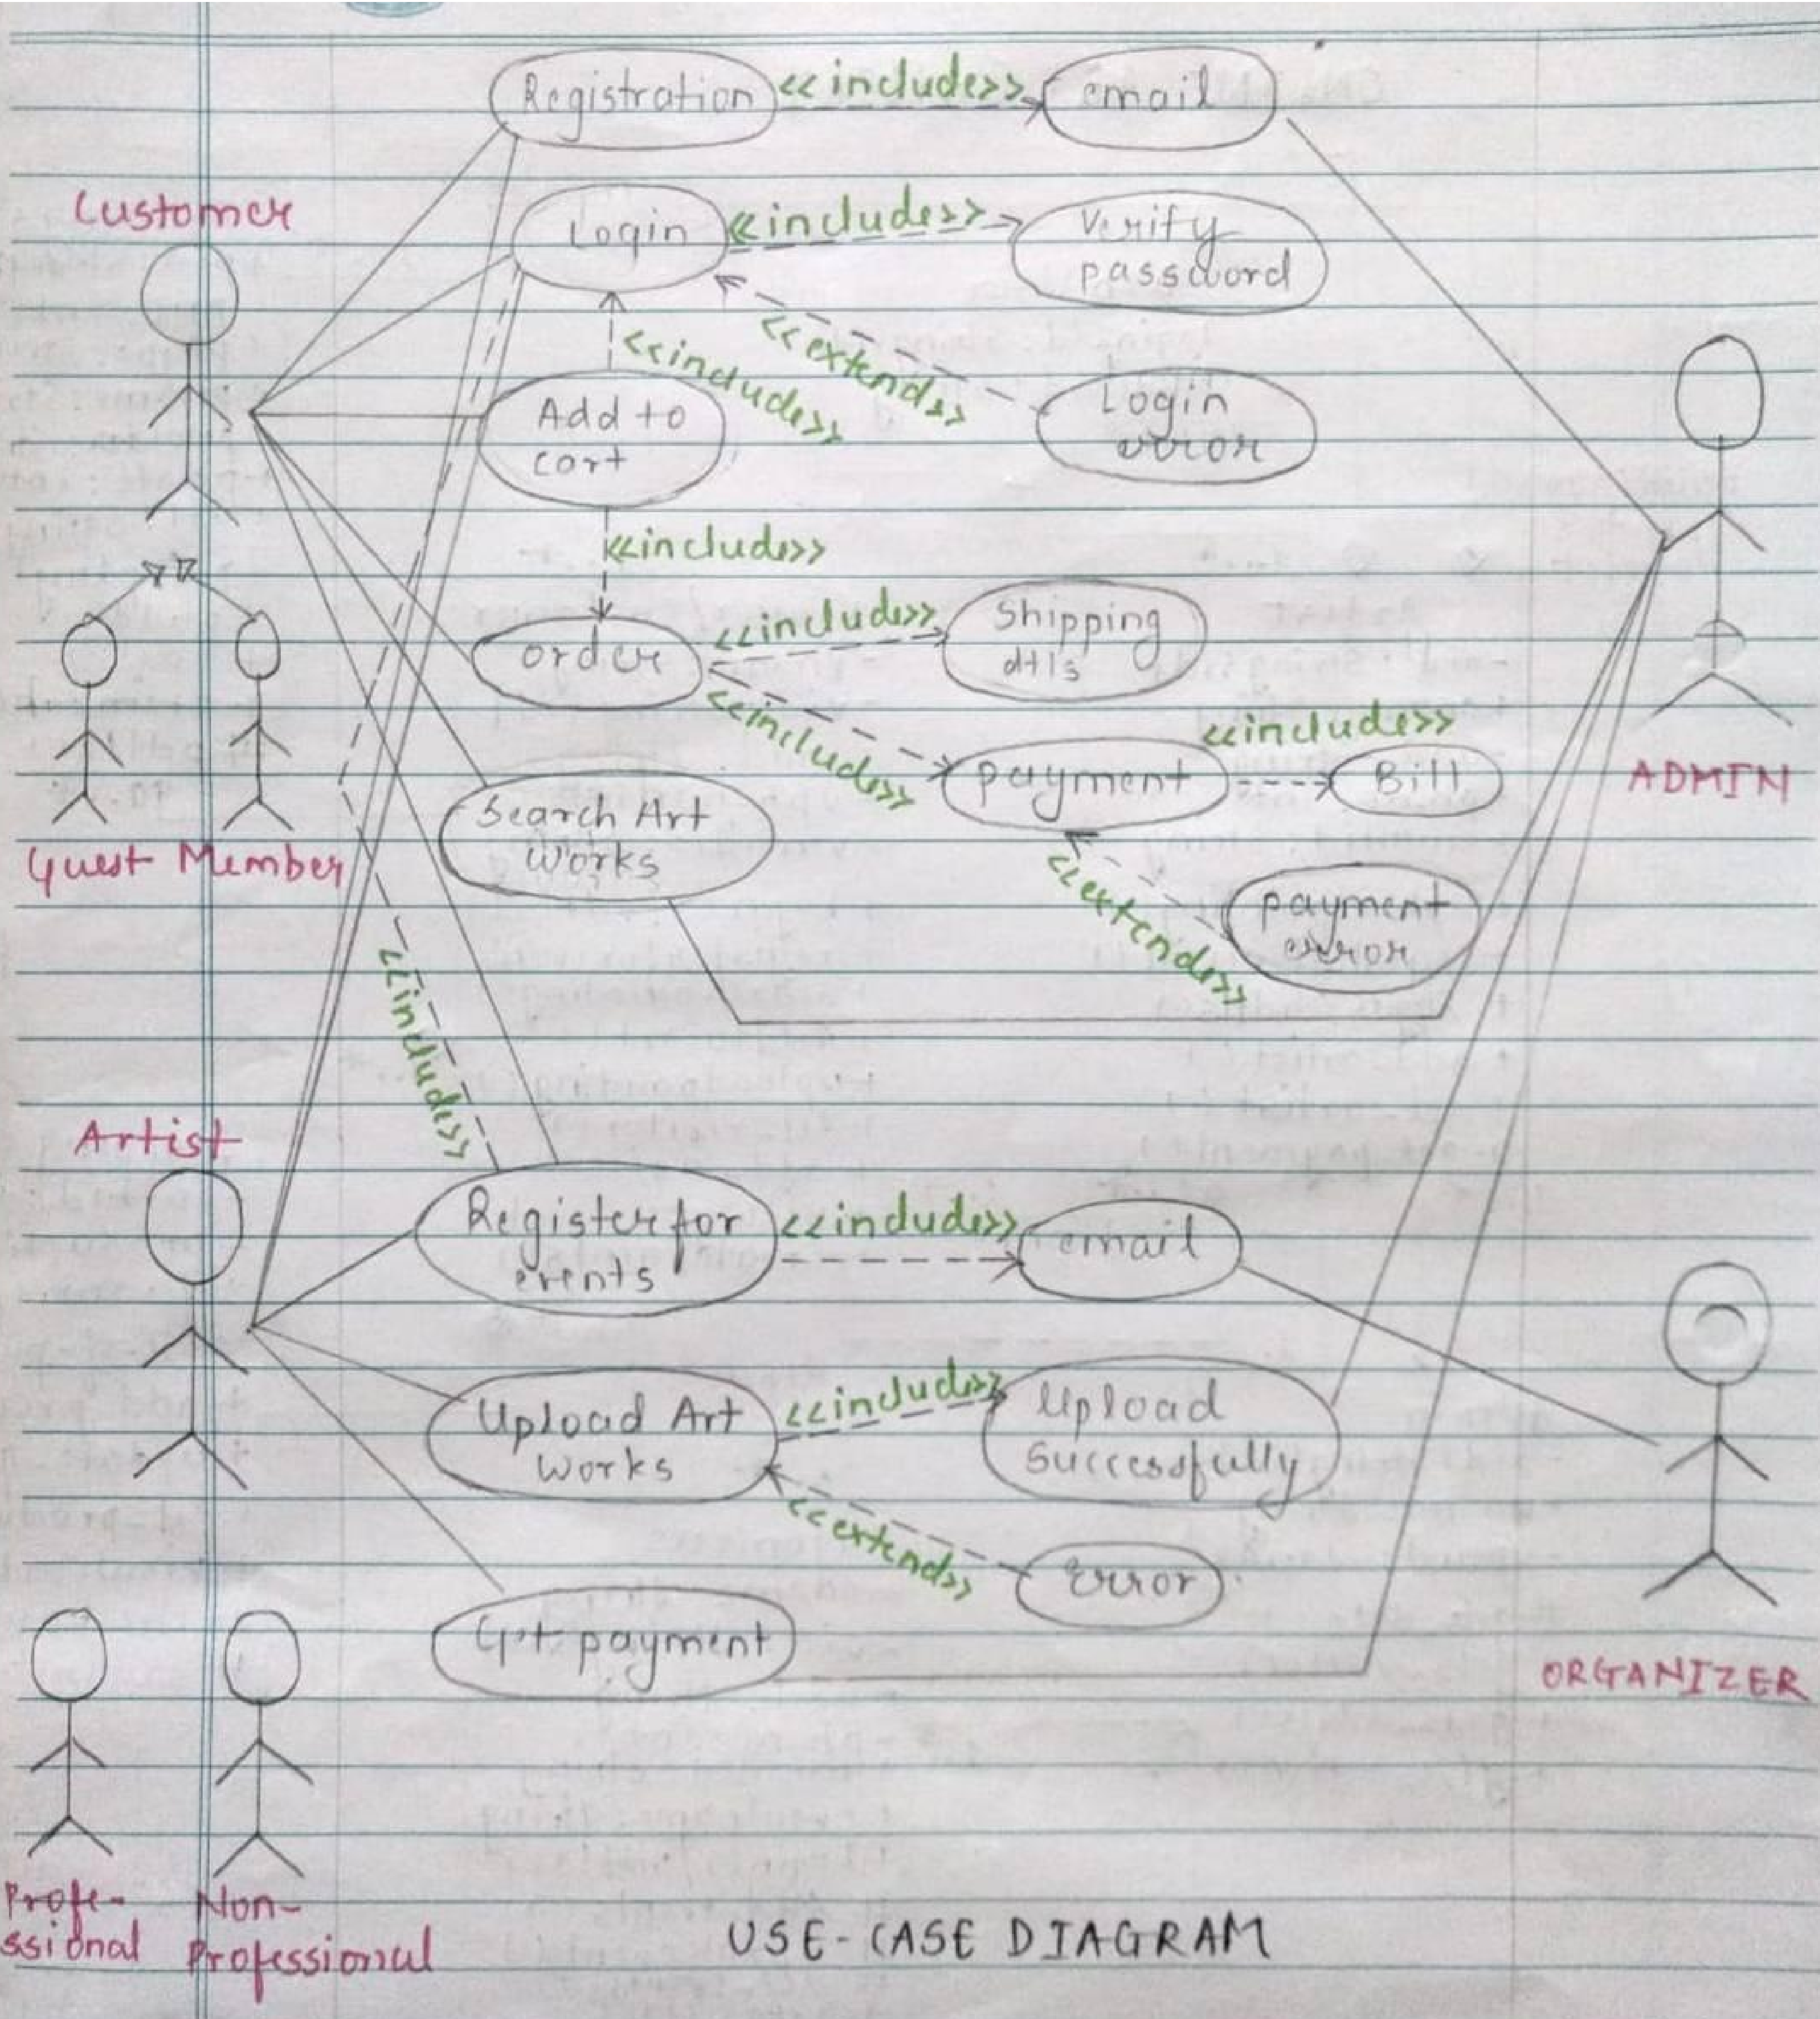 Registration <<include>> email
Customer
Login <<include>> Verify
password
<<include>> <<extends>>
Add to
cart
Login
error
<<include>>
order <<include>> Shipping
dtls
<<include>>
payment <<include>> Bill
ADMIN
Search Art
Works
Guest Member
<<extends>>
payment
error
<<include>>
Artist
Register for
events
<<include>> email
Upload Art
Works
<<include>> Upload
Successfully
<<extends>>
Error
Get payment
ORGANIZER
Profe-
ssional
Non-
Professional
USE-CASE DIAGRAM